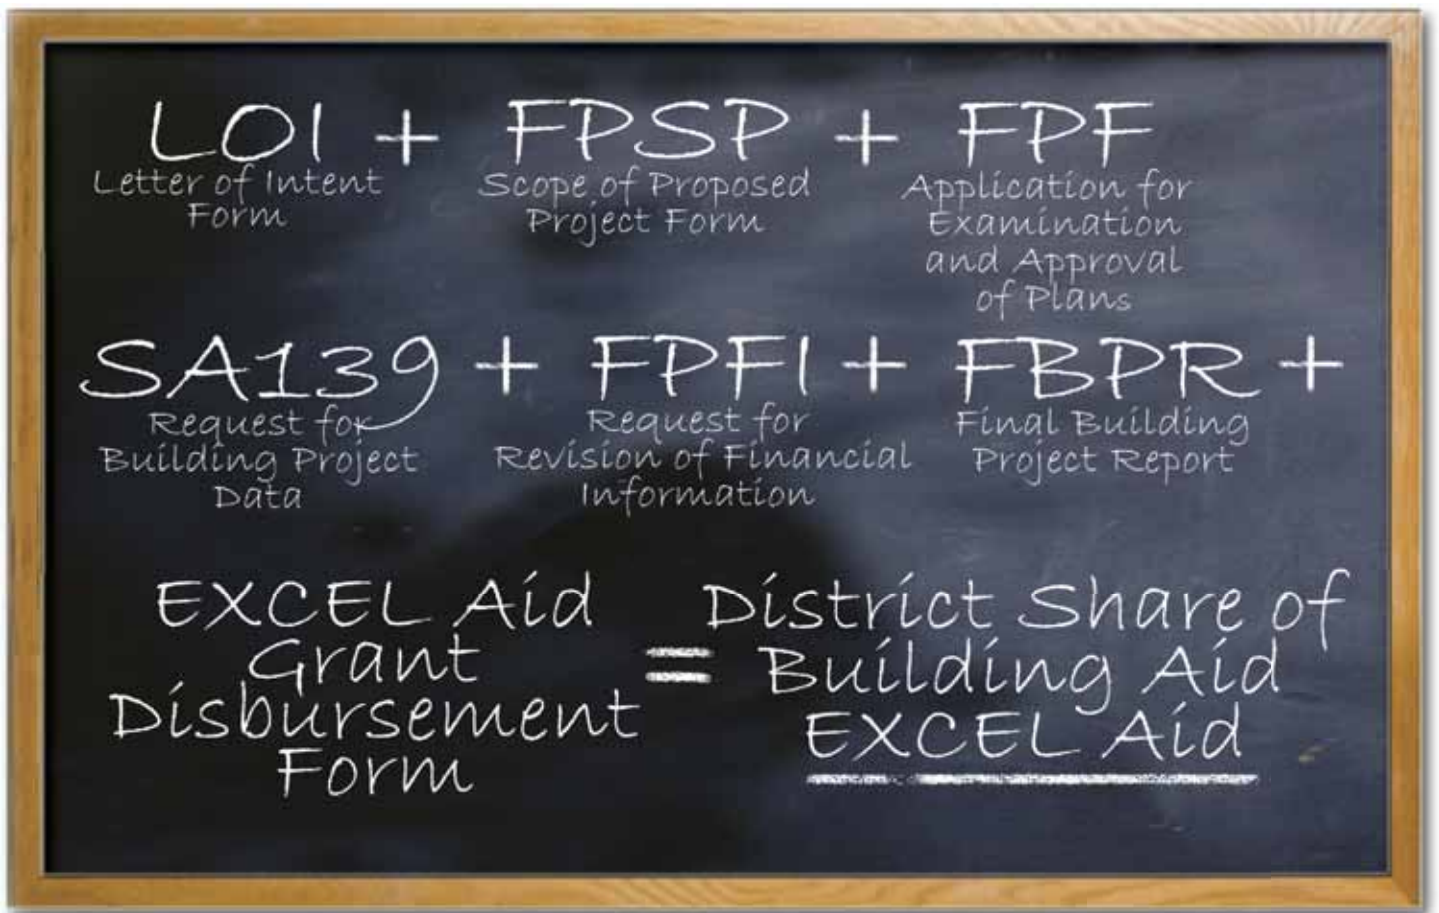 LOI + FPSP + FPF
Letter of Intent
Form
Scope of Proposed
Project Form
Application for
Examination
and Approval
of Plans
SA139 + FPFI + FBPR +
Request for
Building Project
Data
Request for
Revision of Financial
Information
Final Building
Project Report
EXCEL Aid
Grant
Disbursement
Form
=
District Share of
Building Aid
EXCEL Aid